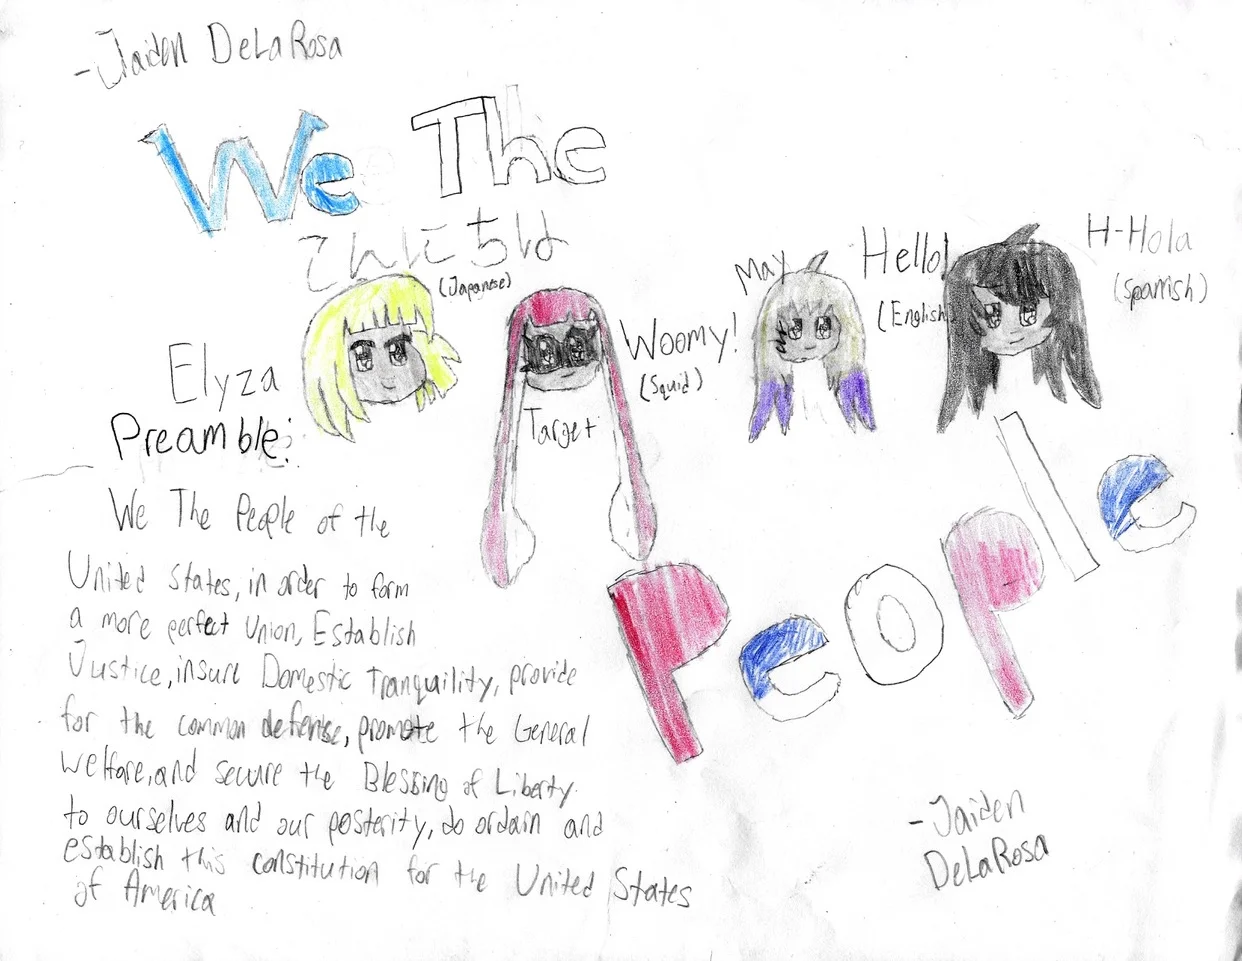 -Jaiden DeLaRosa
We The
こんにちは
(Japanese)
Elyza
Target
Woomy!
(Squid)
May
Hello!
(English)
H-Hola
(Spanish)
People
Preamble:
We The People of the
United States, in order to form
a more perfect Union, Establish
Justice, insure Domestic Tranquility, provide
for the common defense, promote the General
Welfare, and secure the Blessing of Liberty
to ourselves and our posterity, do ordain and
establish this constitution for the United States
of America
-Jaiden
DeLaRosa